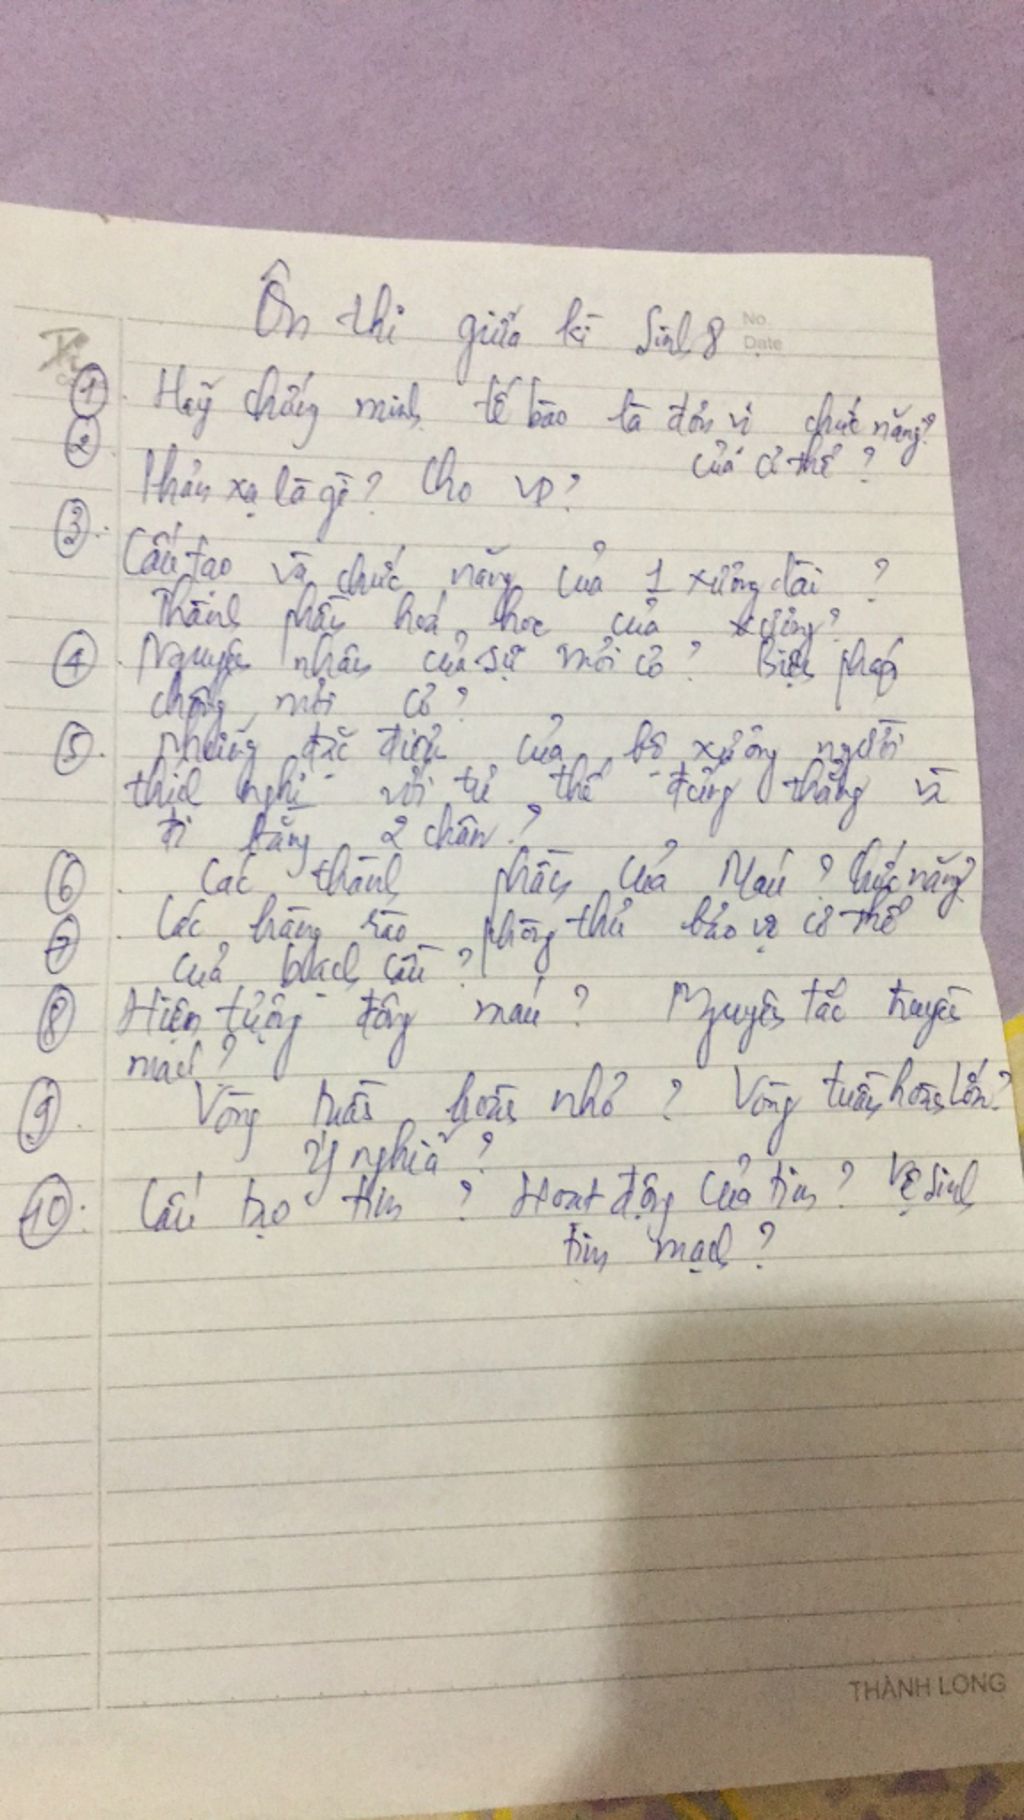 Ôn thi giữa kì Sinh 8
No.
Date
① Hãy chứng minh tế bào là đơn vị chức năng
của cơ thể ?
② Phản xạ là gì ? Cho VD ?
③ Cấu tạo và chức năng của 1 xương dài ?
Thành phần hoá học của xương ?
④ Nguyên nhân của sự mỏi cơ ? Biện pháp
chống mỏi cơ ?
⑤ Những đặc điểm của bộ xương người
thích nghi với tư thế đứng thẳng và
đi bằng 2 chân ?
⑥ Các thành phần của Máu ? Chức năng ?
⑦ Các hàng rào phòng thủ bảo vệ cơ thể
của bạch cầu ?
⑧ Hiện tượng đông máu ? Nguyên tắc truyền
máu ?
⑨ Vòng tuần hoàn nhỏ ? Vòng tuần hoàn lớn ?
Ý nghĩa ?
⑩ Cấu tạo tim ? Hoạt động của tim ? Vệ sinh
tim mạch ?
THÀNH LONG